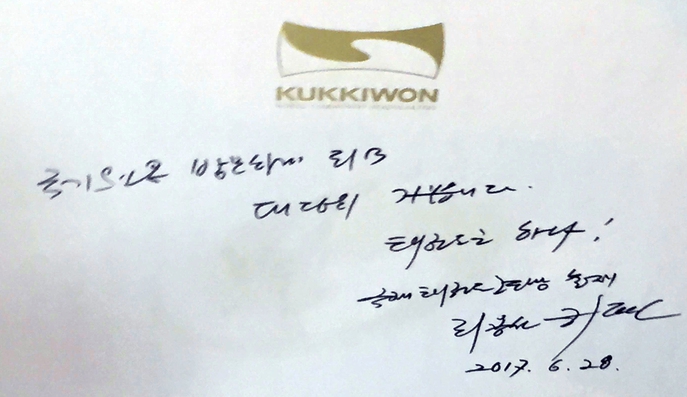 KUKKIWON
국기원을 방문하게 되여
대단히 기쁩니다.
태권도는 하나!
국제태권도련맹 총재
리용선
2017. 6. 28.